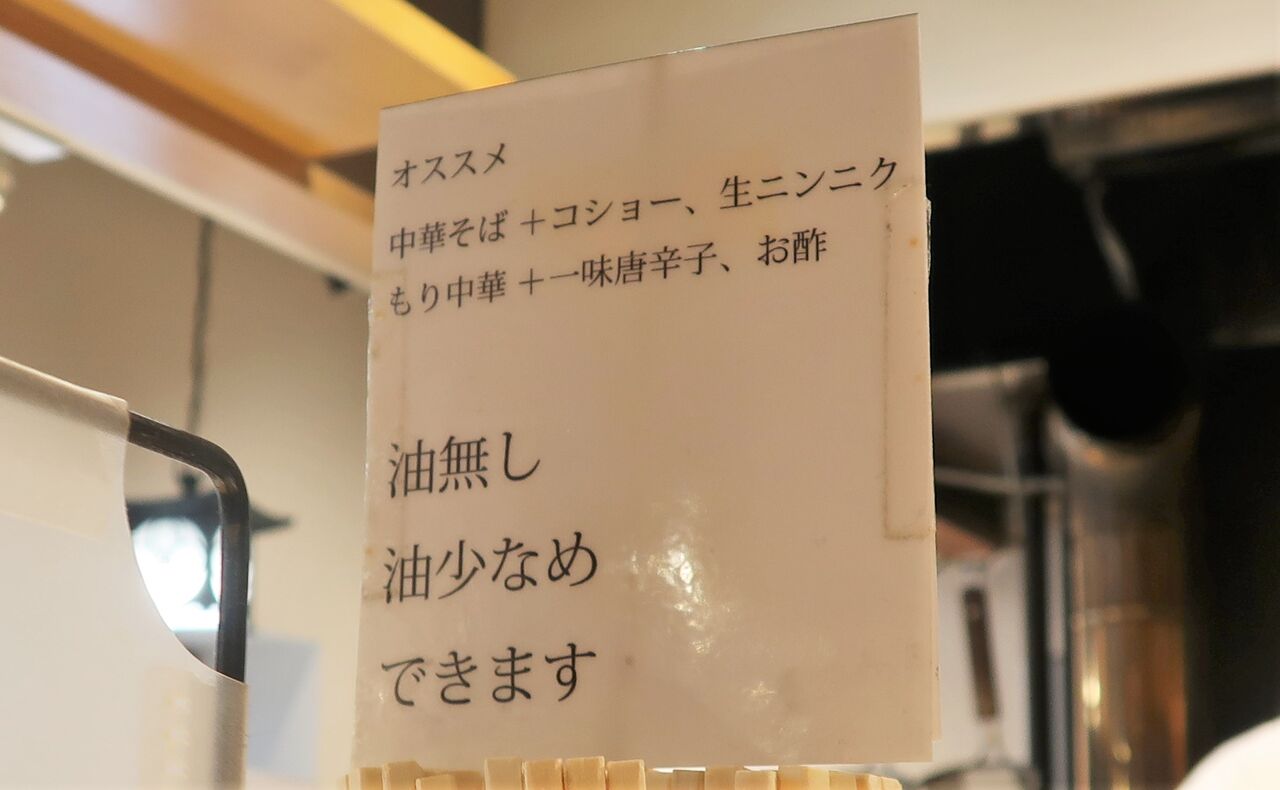 オススメ
中華そば ＋コショー、生ニンニク
もり中華 ＋一味唐辛子、お酢
油無し
油少なめ
できます